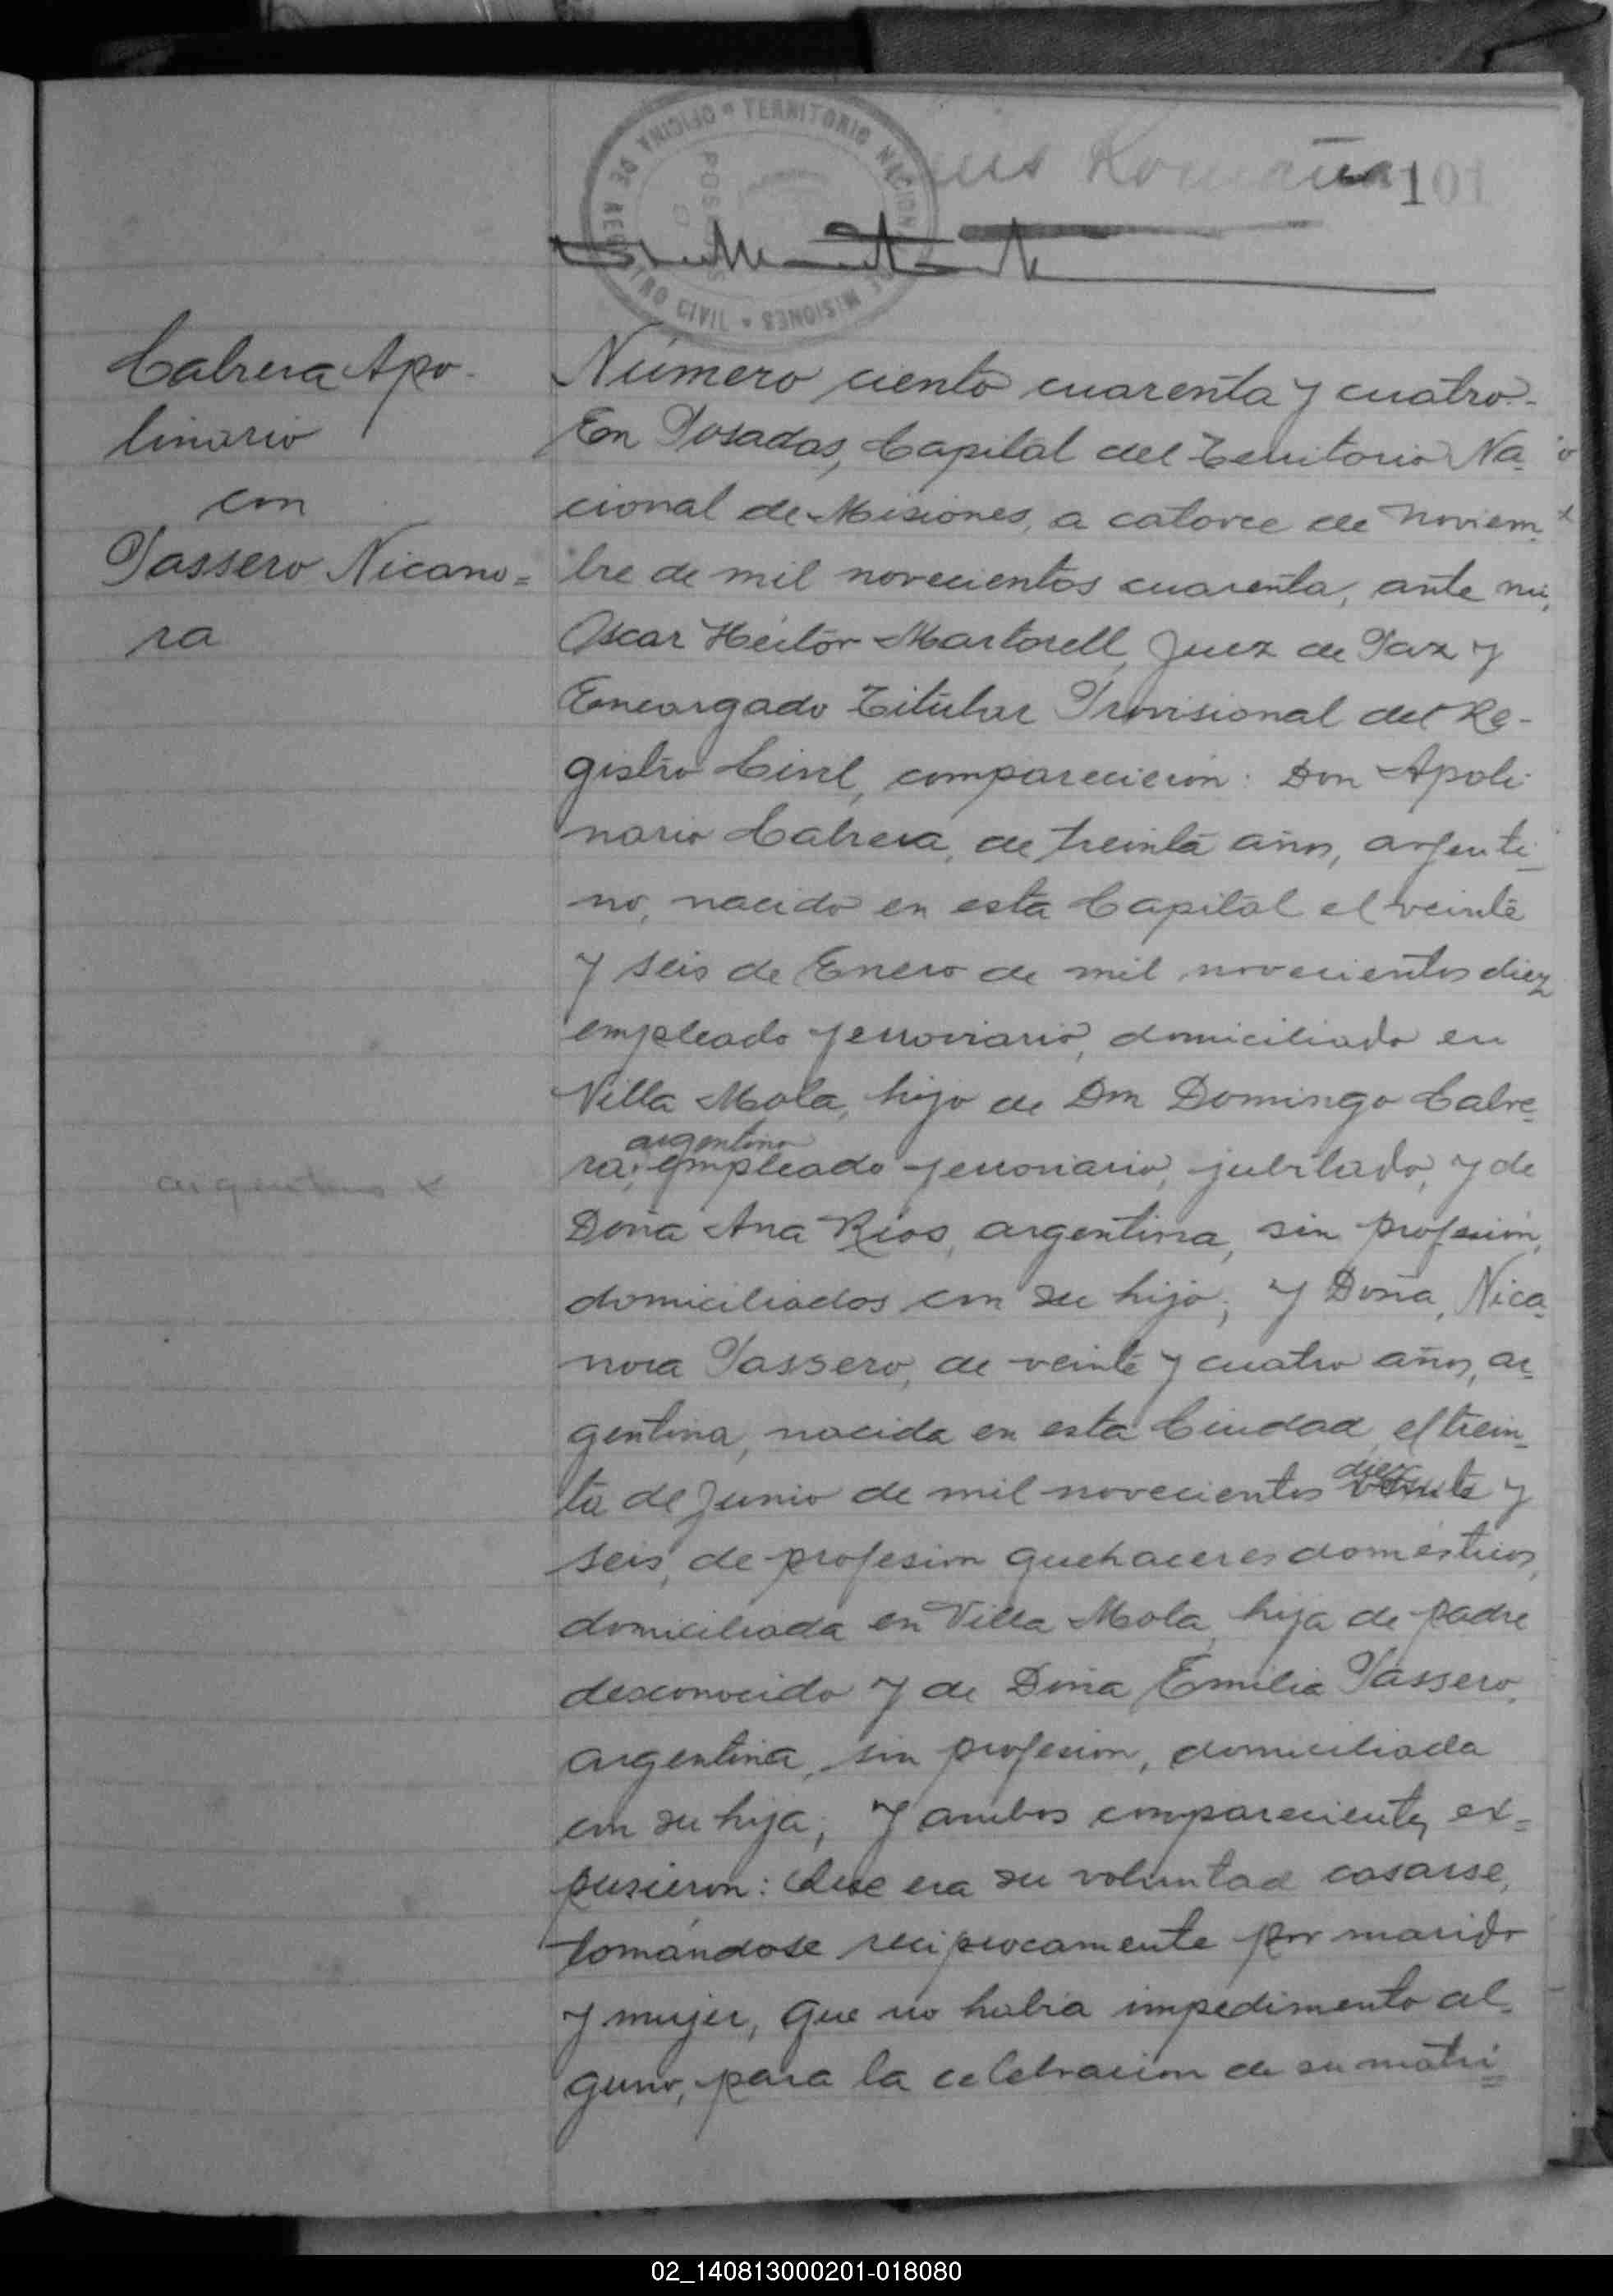 OFICINA DE REGISTRO CIVIL • TERRITORIO NACIONAL DE MISIONES •
101
Cabrera Apo-
linario
con
Passero Nicano=
ra
Número ciento cuarenta y cuatro.-
En Posadas, Capital del Territorio Na-
cional de Misiones, a catorce de Noviem-
bre de mil novecientos cuarenta, ante mi,
Oscar Héctor Martorell, Juez de Paz y
Encargado Titular Provisional del Re-
gistro Civil, comparecieron: Don Apoli-
nario Cabrera, de treinta años, argenti-
no, nacido en esta Capital el veinte
y seis de Enero de mil novecientos diez
empleado ferroviario, domiciliado en
Villa Mola, hijo de Don Domingo Cabre-
argentino
ra, empleado ferroviario, jubilado, y de
argentino x
Doña Ana Rios, argentina, sin profesion,
domiciliados con su hijo; y Doña, Nica-
nora Passero, de veinte y cuatro años, ar-
gentina, nacida en esta Ciudad, el trein-
diez
ta de Junio de mil novecientos veinte y
seis, de profesion quehaceres domésticos,
domiciliada en Villa Mola, hija de padre
desconocido y de Doña Emilia Passero,
argentina, sin profesion, domiciliada
con su hija; y ambos comparecientes ex=
pusieron: Que era su voluntad casarse,
tomándose reciprocamente por marido
y mujer, que no habia impedimento al-
guno, para la celebracion de su matri=
02_140813000201-018080